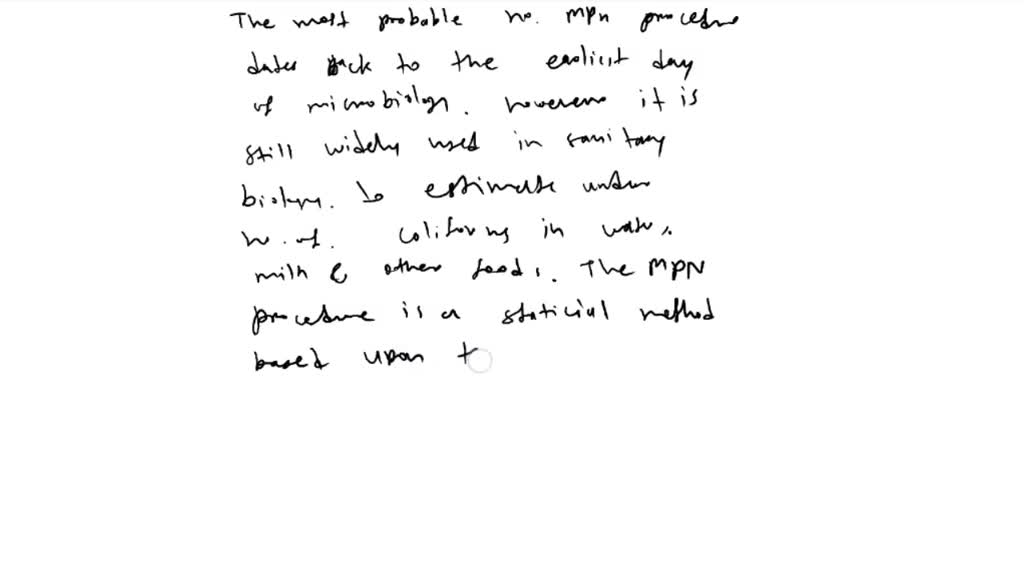 The most probable no. MPN procedure
dates back to the earliest day
of microbiology. however it is
still widely used in sanitary
biology. to estimate
no. of. coliforms in water,
milk & other foods. The MPN
procedure is a staticial method
based upon t